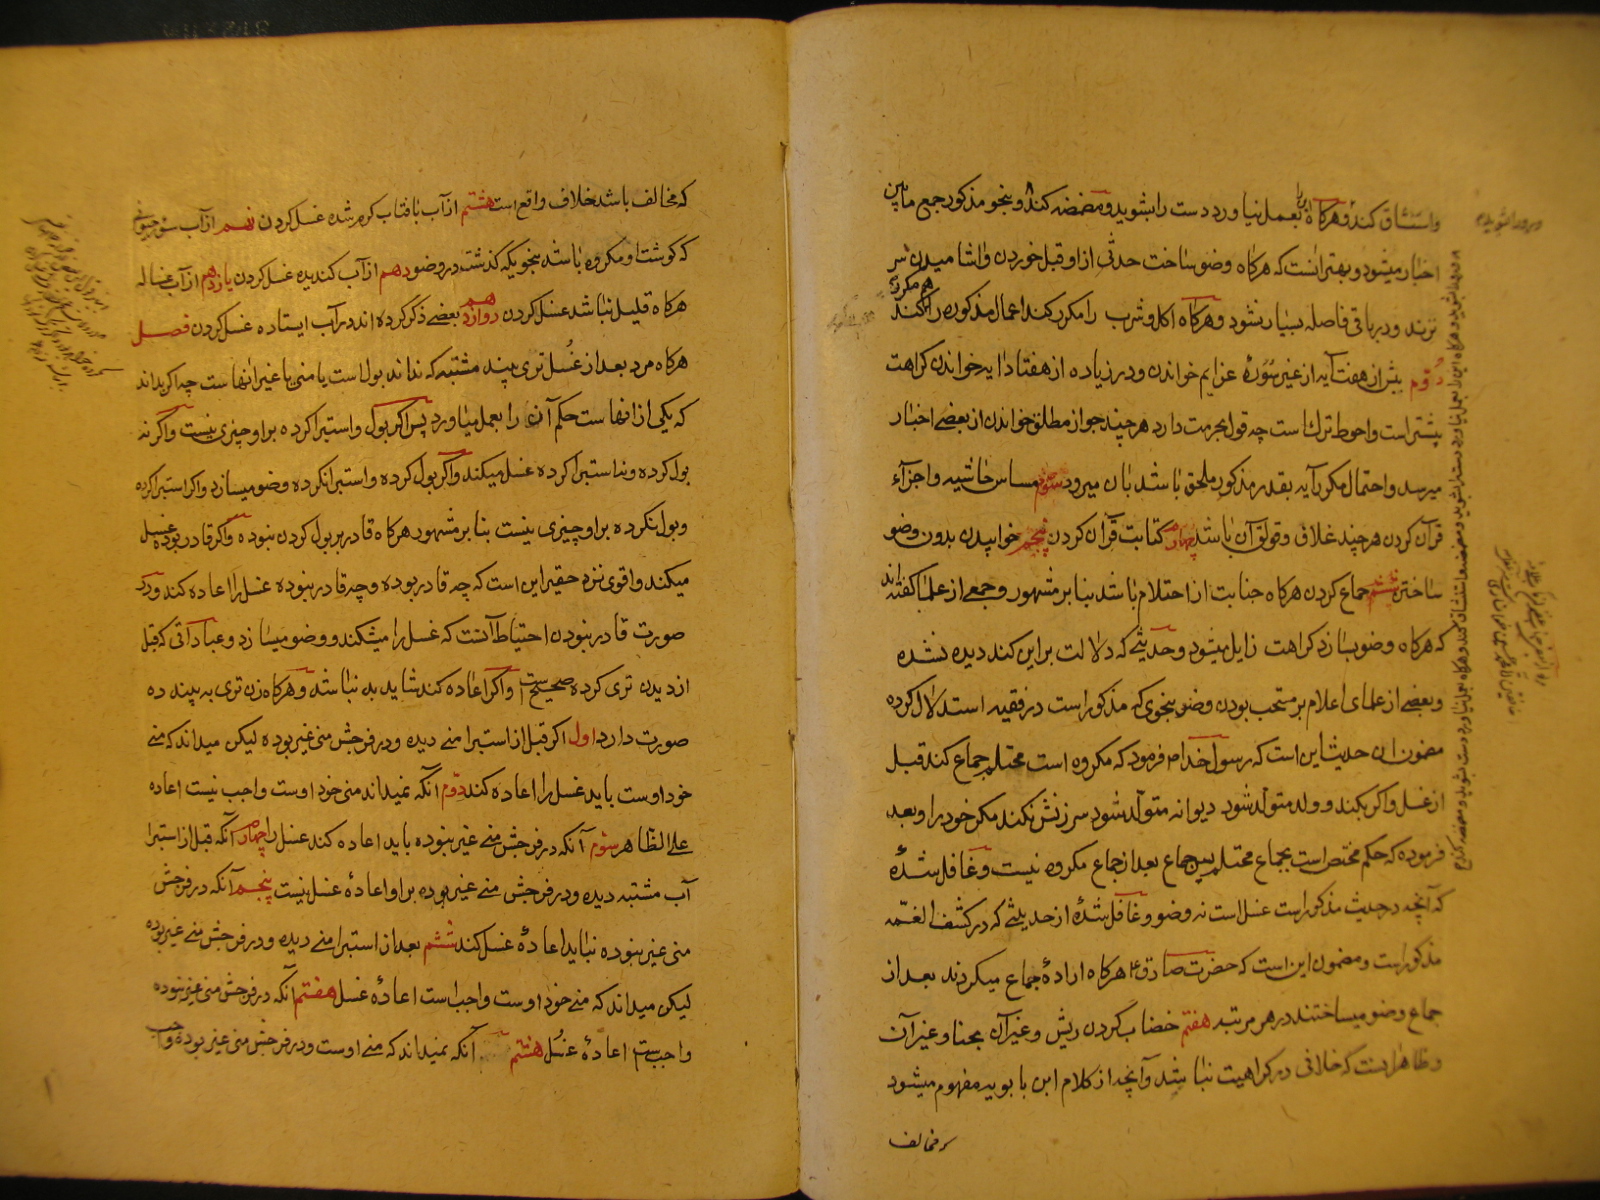 واستنشاق کند و هرکاه این را بعمل نیاورد دست را بشوید و مضمضه کند و بنحو مذکور جمع مابین
اخبار میشود و بهتر انست که هرکاه وضو ساخت حدثی از او قبل خوردن واشامیدن سر
نزند و در باقی فاصله بسیار نشود و هرکاه اکل و شرب را مکرر کند اعمال مذکوره را هم مکرر کند
دوم بیش از هفت آیه از غیر سورهٔ عزایم خواندن و در زیاده از هفتاد ایه خواندن کراهت
بیشتر است و احوط ترک است چه قول بحرمت دارد هر چند جواز مطلق خواندن از بعضے اخبار
میرسد و احتمال مکرر آیه بقدر مذکور ملحق باشد بان میرود سوم مساس حاشیه و اجزآء
قرآن کردن هر چند غلاف و قولق آن باشد چهارم کتابت قرآن کردن پنجم خوابیدن بدون وضو
ساختن ششم جماع کردن هرکاه جنابت از احتلام باشد بنا بر مشهور و جمعے از علما کفته اند
که هرکاه وضو بسازد کراهت زایل میشود و حدیثے که دلالت بر این کند دیده نشده
و بعضے از علمای اعلام بر مستحب بودن وضو بنحوی که مذکور است در فقیه استدلال کرده
مضمون ان حدیث این است که رسول خدا م فرمود که مکروه است محتلم جماع کند قبل
از غسل و اکر بکند و ولد متولد شود دیوانه متولد شود سرزنش نکند مکر خود را و بعد
فرموده که حکم مختص است بجماع محتلم پس جماع بعد از جماع مکروه نیست و غافل شدهٔ
که آنچه در حدیث مذکور است غسل است نه وضو و غافل شدهٔ از حدیثے که در کشف الغمّه
مذکور است و مضمون این است که حضرت صادق ع هرکاه ارادهٔ جماع میکردند بعد از
جماع وضو میساختند در هر مرتبه هفتم خضاب کردن ریش و غیر آن بحنا و غیر آن
و ظاهرا نیست که خلافی در کراهیت نباشد و آنچه از کلام ابن بابویه مفهوم میشود
که مخالف باشد خلاف واقع است هشتم از آب بافتاب کرم شده غسل کردن نهم از آب سؤر حیوانی
که کوشت او مکروه باشد بنحویکه کذشت در وضو دهم از آب کندیده غسل کردن یازدهم از آب غساله
هرکاه قلیل نباشد غسل کردن دوازدهم بعضے ذکر کرده اند در آب ایستاده غسل کردن فصل
هرکاه مرد بعد از غسل تری بیند مشتبه که نداند بول است یا منی یا غیر انهاست چه اکر بداند
که یکی از انهاست حکم آن را بعمل میاورد پس اکر بول و استبرا کرده بر او چیزی نیست و اکر نه
بول کرده و نه استبرا کرده غسل میکند و اکر بول کرده و استبرا نکرده وضو میسازد و اکر استبرا کرده
و بول نکرده بر او چیزی نیست بنا بر مشهور هرکاه قادر بر بول کردن نبوده و اکر قادر بوده غسل
میکند و اقوی نزد حقیر این است که چه قادر بوده و چه قادر نبوده غسل را اعاده کند و در
صورت قادر نبودن احتیاط آنست که غسل را میشکند و وضو میسازد و عباداتی که قبل
از دیدن تری کرده صحیح است و اکر اعاده کند شاید بد نباشد و هرکاه زن تری به بیند ده
صورت دارد اول اکر قبل از استبرا منے دیده و در فرجش منی غیر بوده لیکن میداند که منے
خود اوست باید غسل را اعاده کند دوم آنکه نمیداند منی خود اوست واجب نیست اعاده
علی الظّاهر سوم آنکه در فرجش منے غیر نبوده باید اعاده کند غسل را چهارم آنکه قبل از استبرا
آب مشتبه دیده و در فرجش منے غیر بوده بر او اعادهٔ غسل نیست پنجم آنکه در فرجش
منی غیر نبوده نباید اعادهٔ غسل کند ششم بعد از استبرا منے دیده و در فرجش منے غیر بوده
لیکن میداند که منے خود اوست واجب است اعادهٔ غسل هفتم آنکه در فرجش منی غیر نبوده
واجبست اعادهٔ غسل هشتم آنکه نمیداند که منے اوست و در فرجش منی غیر بوده واجب